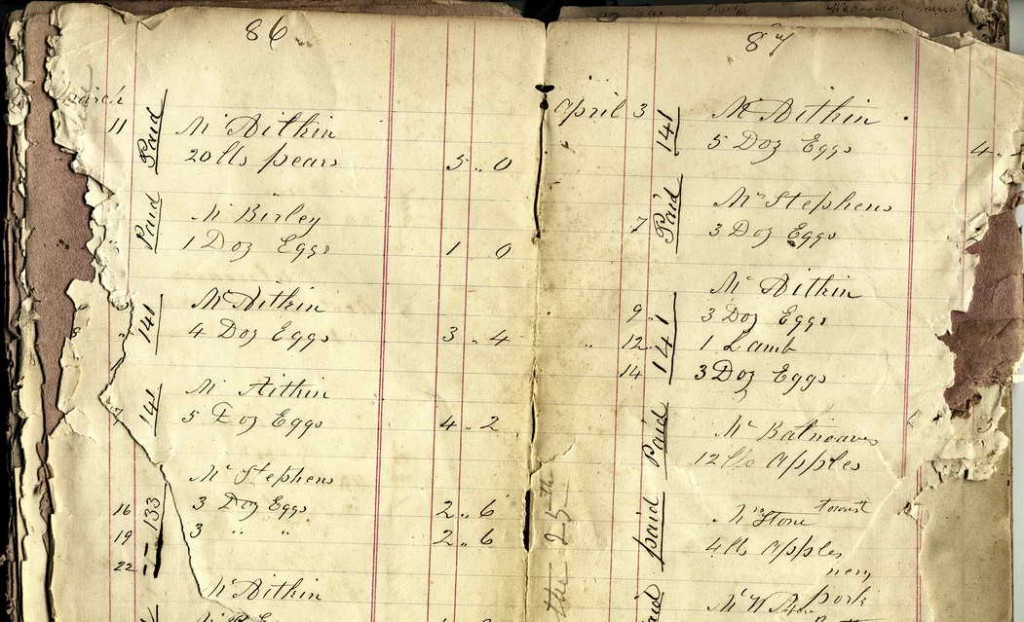 86
March
11 Paid Mr Aitkin
20 lbs pears 5 .. 0
Paid Mr Birley
1 Doz Eggs 1 0
141 Mr Aitkin
4 Doz Eggs 3 .. 4
141 Mr Aitkin
5 Doz Eggs 4 .. 2
Mr Stephens
16 133 3 Doz Eggs 2 .. 6
19 3 " " 2 .. 6
22
Mr Aitkin
87
April 3 141 Mr Aitkin
5 Doz Eggs 4
Paid Mr Stephens
7 3 Doz Eggs
141 Mr Aitkin
9 3 Doz Eggs
" 12 1 Lamb
14 3 Doz Eggs
Paid Mr
12 lbs Apples
paid Mrs Stone
4 lb Apples
Mr W
pork
the 25th